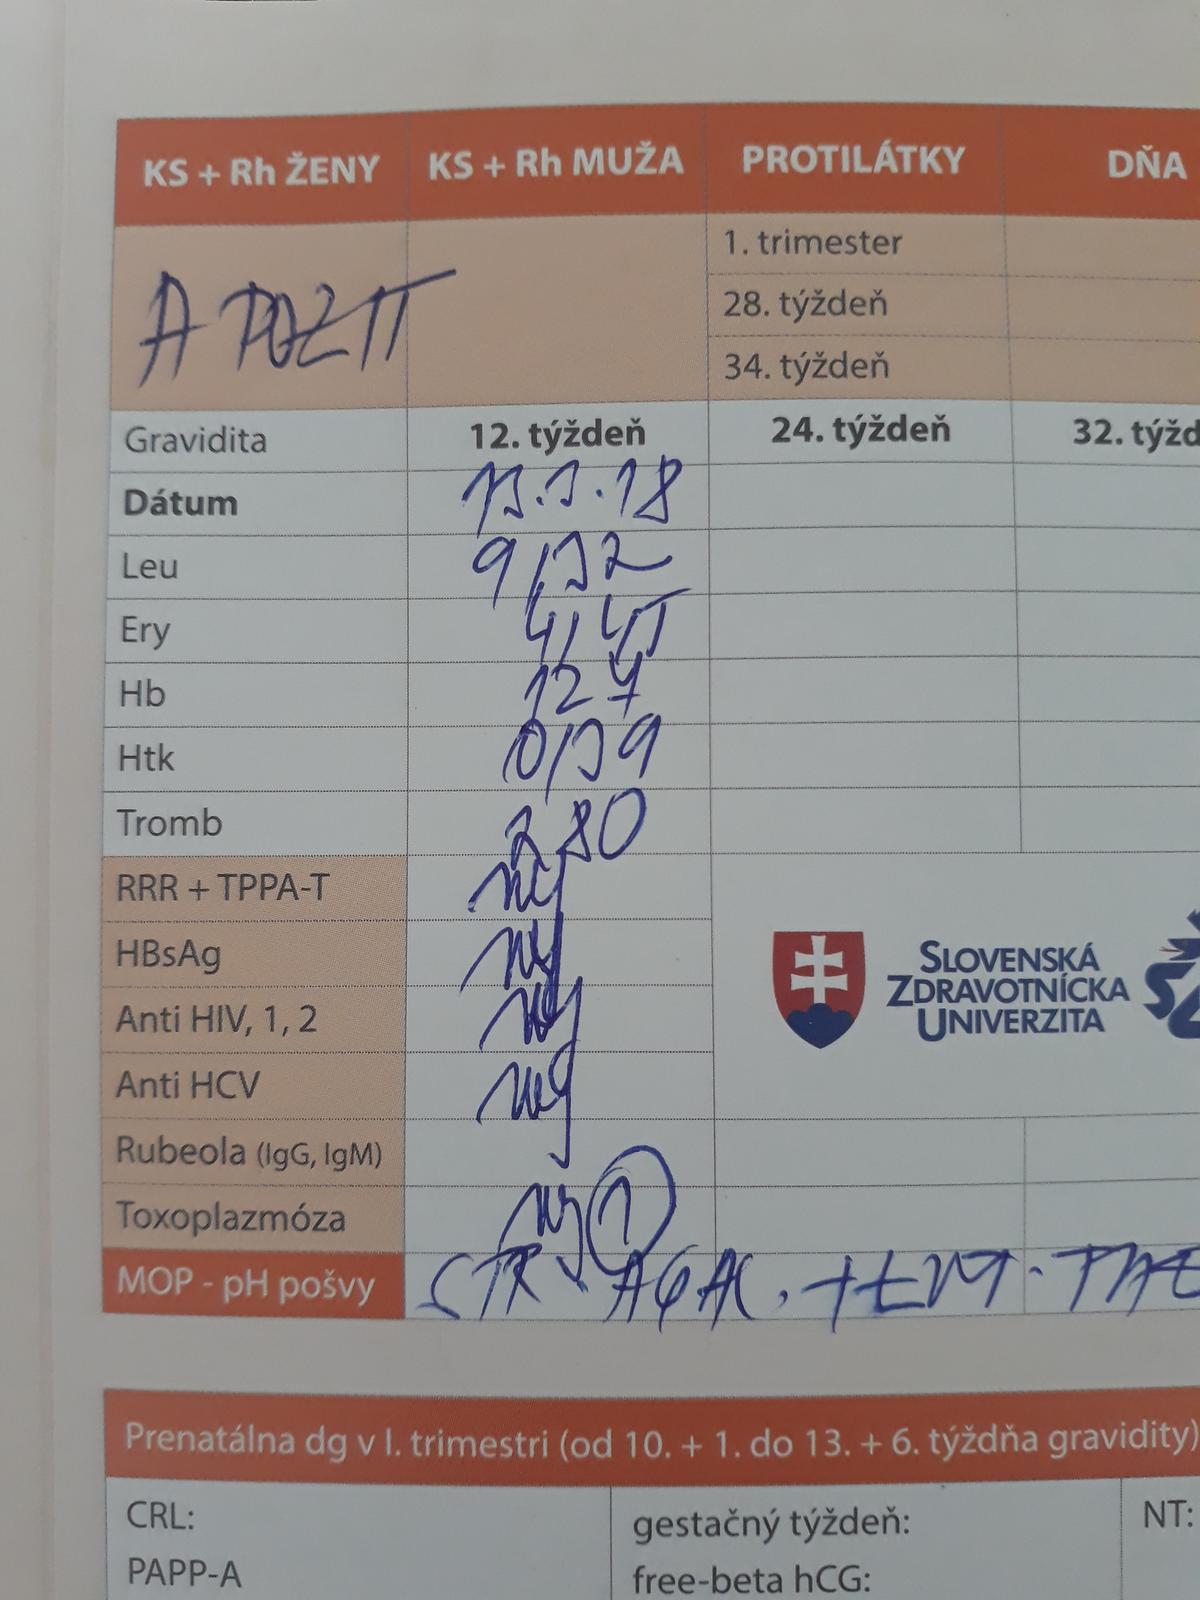 KS + Rh ŽENY KS + Rh MUŽA PROTILÁTKY DŇA
A POZIT 1. trimester
28. týždeň
34. týždeň
Gravidita 12. týždeň 24. týždeň 32. týžd
Dátum 13.3.18
Leu 9,32
Ery 4,45
Hb 127
Htk 0,39
Tromb 280
RRR + TPPA-T neg
HBsAg neg
Anti HIV, 1, 2 neg
Anti HCV neg
Rubeola (IgG, IgM)
Toxoplazmóza neg
MOP - pH pošvy STR. AGAL.
SLOVENSKÁ
ZDRAVOTNÍCKA
UNIVERZITA
Prenatálna dg v I. trimestri (od 10. + 1. do 13. + 6. týždňa gravidity)
CRL: gestačný týždeň: NT:
PAPP-A free-beta hCG: